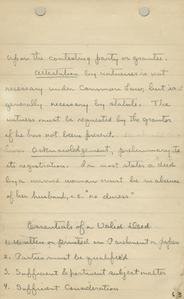 upon the contesting party or grantee.
Attestation by witnesses is not
necessary under Common Law, but is
generally necessary by statute. The
witness must be requested by the grantor
if he has not been present.
Acknowledgement, preliminary to
its registration. In most states a deed
by a married woman must be in absence
of her husband, i.e. "no duress"
Essentials of a Valid Deed
1. Written or printed on Parchment or paper
2. Parties must be qualified
3. Sufficient & pertinent subject matter
4. Sufficient Consideration